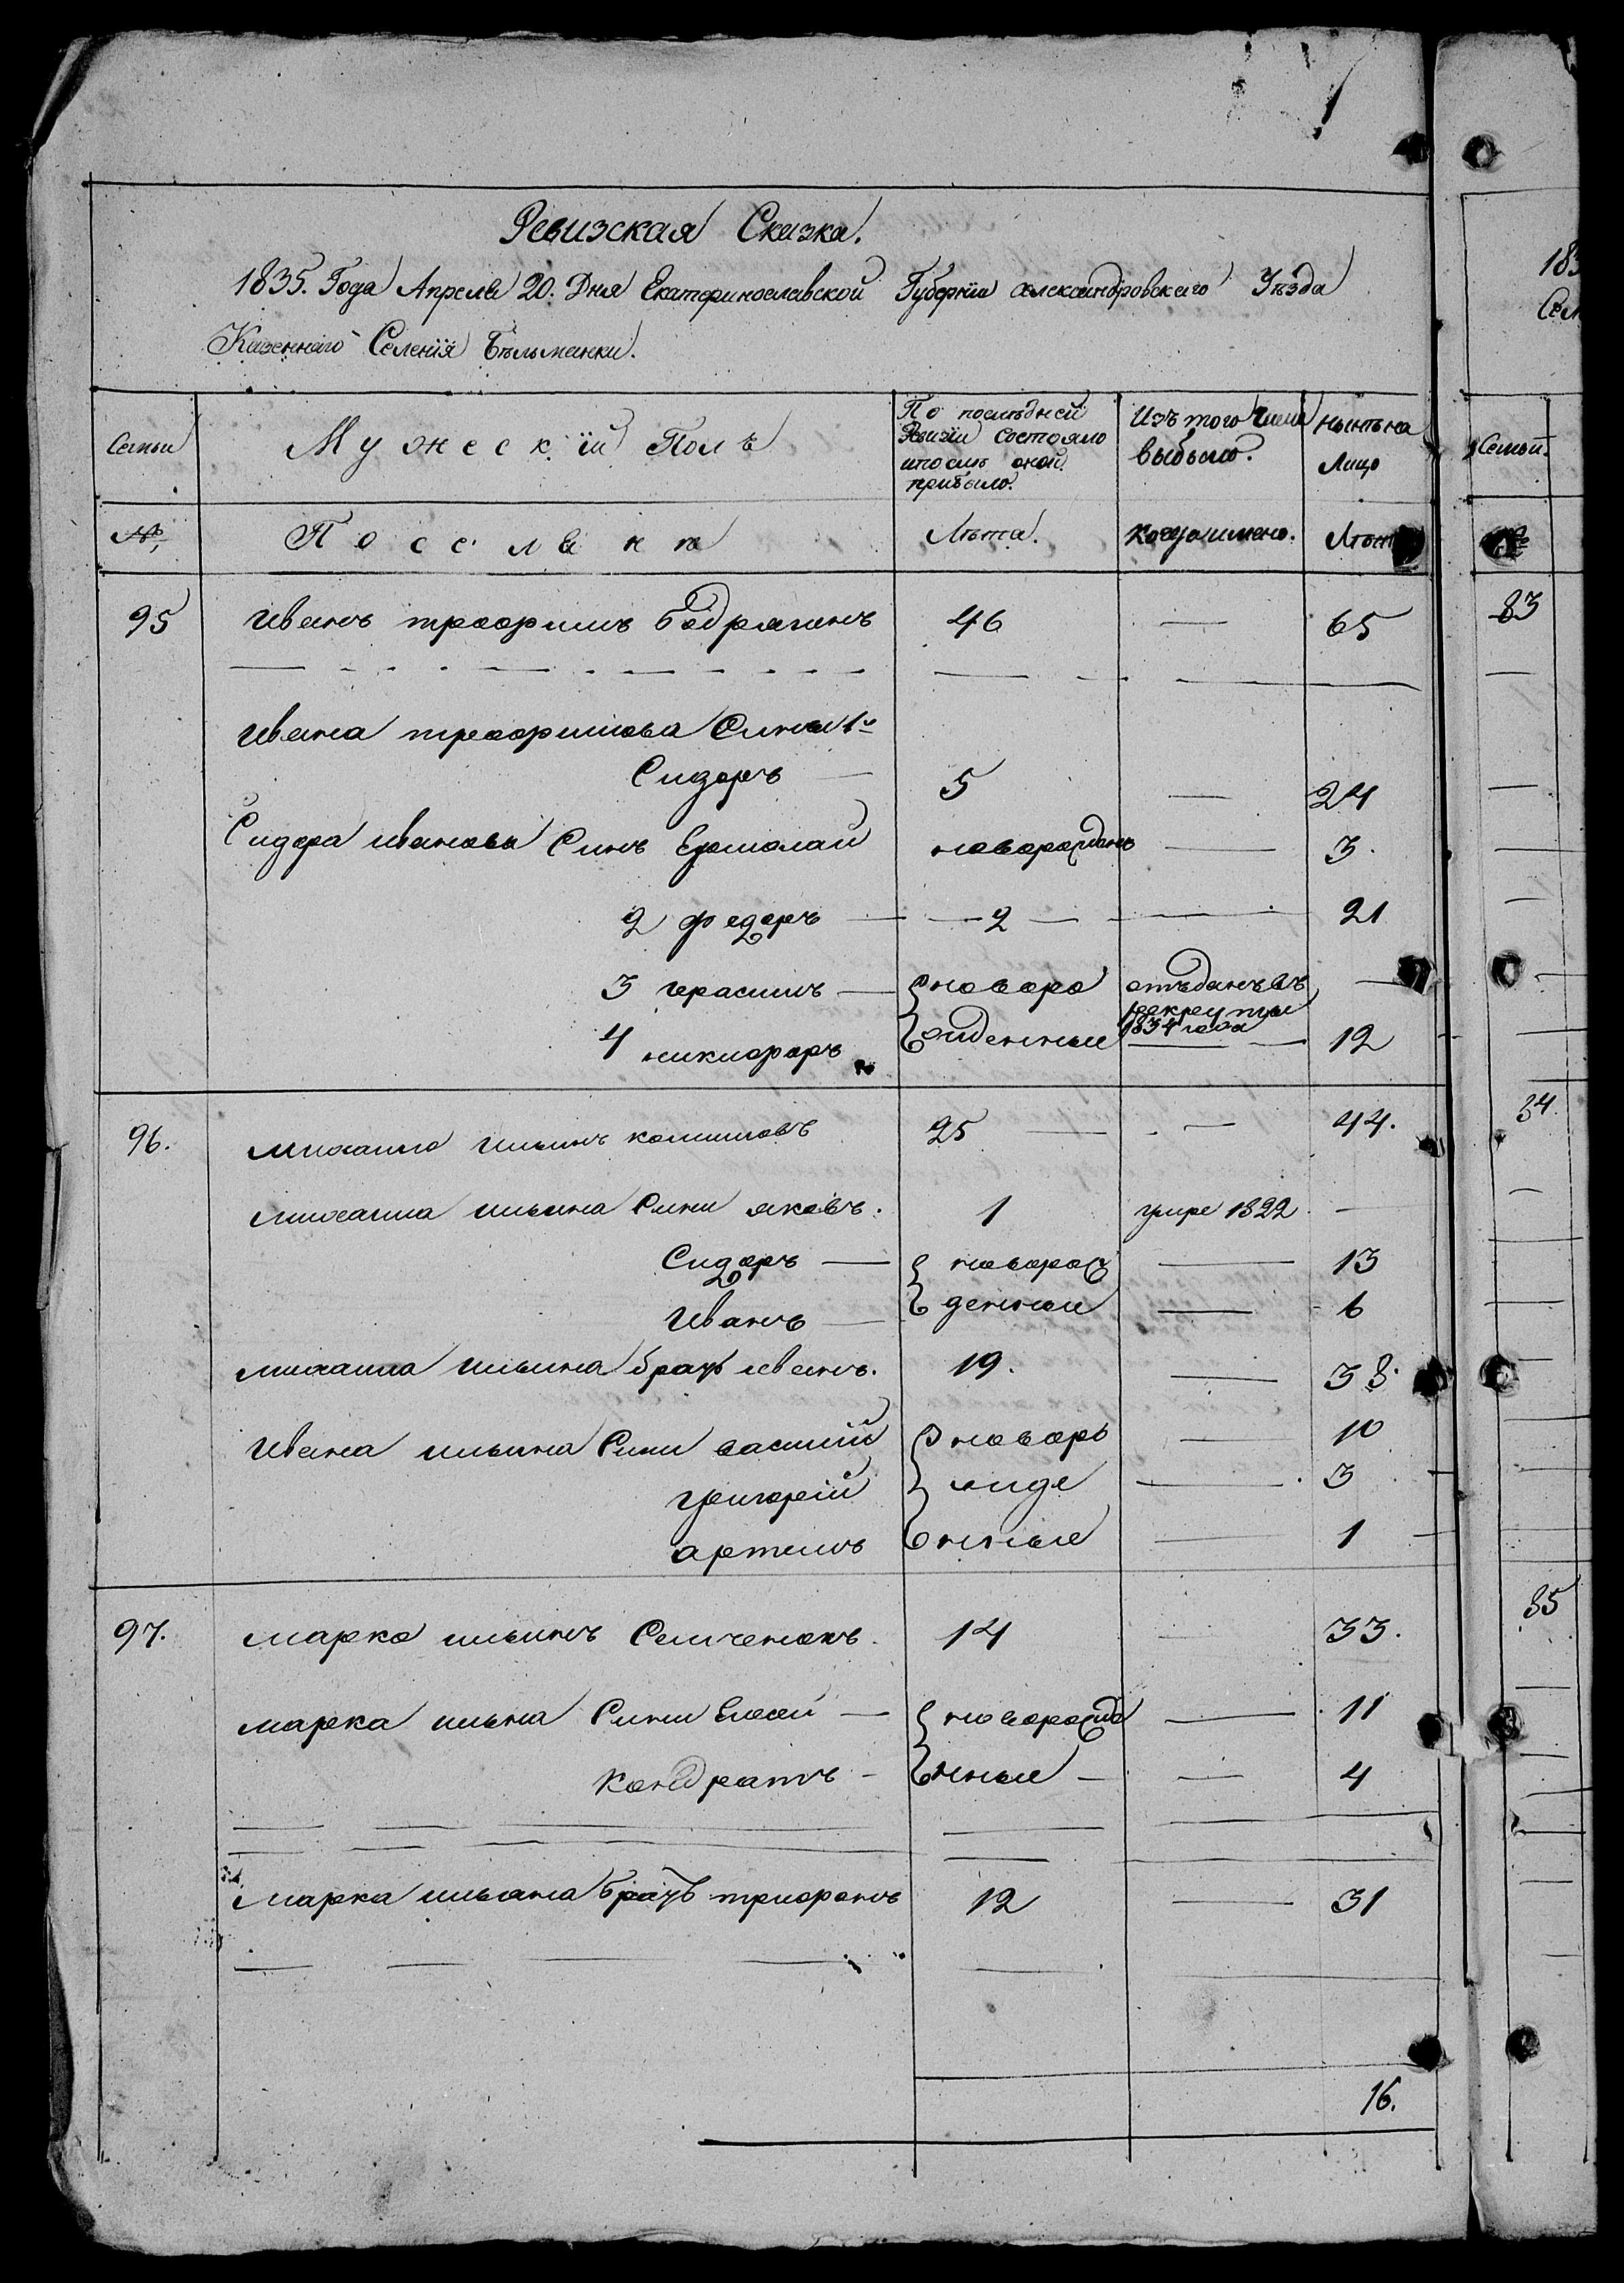 Ревизская Сказка.
1835. Года Апреля 20. Дня Екатеринославской Губернiи александровскаго Уѣзда
Казеннаго Селенiя Бѣльманки.
Семьи
Мужескiй Полъ
По послѣдней Ревизiи состояло ипослѣ оной прибыло.
Изъ того числа выбыло.
нынѣ на Лицо
Семьи.
№
Поселянѣ
Лѣта.
Когда имено.
Лѣта
№
95 Иванъ трофимъ бодрягинъ 46 — 65
83
Ивана трофимова Сины 1й
Сидоръ — 5 — 24
Сидора иванова Синъ Ермолай новорожденъ — 3.
2 федоръ — 2 — 21
3 герасимъ — новоро отъданъ въ рекруты 1834 года —
4 никифоръ жденные — 12
96. михаило ильинъ 25 — 44.
84.
михаила ильина Сини яковъ. 1 умре 1822 —
Сидоръ — новорож — 13
Иванъ — денные — 6
михаила ильина братъ иванъ. 19. — 38.
Ивана ильина Сини василiй новоро — 10
григорiй жде — 3
артемъ нные — 1
97. марко ильинъ Семченокъ. 14 — 33.
85
марка ильина Сини Елисей — новорожде — 11
Кондратъ — нные — 4
марка ильина братъ трифонъ 12 — 31
16.
183
Сел